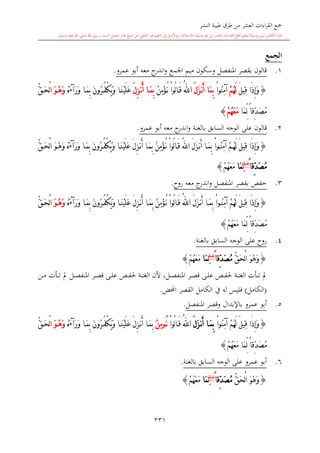 جمع القراءات العشر من طرق طيبة النشر
الجمع
١. قالون بقصر المنفصل وسكون ميم الجمع واندرج معه أبو عمرو.
﴿ وَإِذَا قِيلَ لَهُمْ ءَامِنُوا۟ بِمَآ أَنزَلَ ٱللَّهُ قَالُوا۟ نُؤْمِنُ بِمَآ أُنزِلَ عَلَيْنَا وَيَكْفُرُونَ بِمَا وَرَآءَهُۥ وَهْوَ ٱلْحَقُّ
مُصَدِّقًا لِّمَا مَعَهُمْ ﴾
٢. قالون على الوجه السابق بالغنة واندرج معه أبو عمرو.
﴿ وَإِذَا قِيلَ لَهُمْ ءَامِنُوا۟ بِمَآ أَنزَلَ ٱللَّهُ قَالُوا۟ نُؤْمِنُ بِمَآ أُنزِلَ عَلَيْنَا وَيَكْفُرُونَ بِمَا وَرَآءَهُۥ وَهْوَ ٱلْحَقُّ
مُصَدِّقًا لِّمَا مَعَهُمْ ﴾
٣. حفص بقصر المنفصل واندرج معه روح.
﴿ وَإِذَا قِيلَ لَهُمْ ءَامِنُوا۟ بِمَآ أَنزَلَ ٱللَّهُ قَالُوا۟ نُؤْمِنُ بِمَآ أُنزِلَ عَلَيْنَا وَيَكْفُرُونَ بِمَا وَرَآءَهُۥ وَهُوَ ٱلْحَقُّ
مُصَدِّقًا لِّمَا مَعَهُمْ ﴾
٤. روح على الوجه السابق بالغنة.
﴿ وَهُوَ ٱلْحَقُّ مُصَدِّقًا لِّمَا مَعَهُمْ ﴾
لم تأت الغنة لحفص على قصر المنفصل لأن الغنة لحفص على قصر المنفصل لم تأت من
(الكامل) فليس له في الكامل القصر المحض.
٥. أبو عمرو بالإبدال وقصر المنفصل.
﴿ وَإِذَا قِيلَ لَهُمْ ءَامِنُوا۟ بِمَآ أَنزَلَ ٱللَّهُ قَالُوا۟ نُومِنُ بِمَآ أُنزِلَ عَلَيْنَا وَيَكْفُرُونَ بِمَا وَرَآءَهُۥ وَهْوَ ٱلْحَقُّ
مُصَدِّقًا لِّمَا مَعَهُمْ ﴾
٦. أبو عمرو على الوجه السابق بالغنة.
﴿ وَهْوَ ٱلْحَقُّ مُصَدِّقًا لِّمَا مَعَهُمْ ﴾
٣٣١